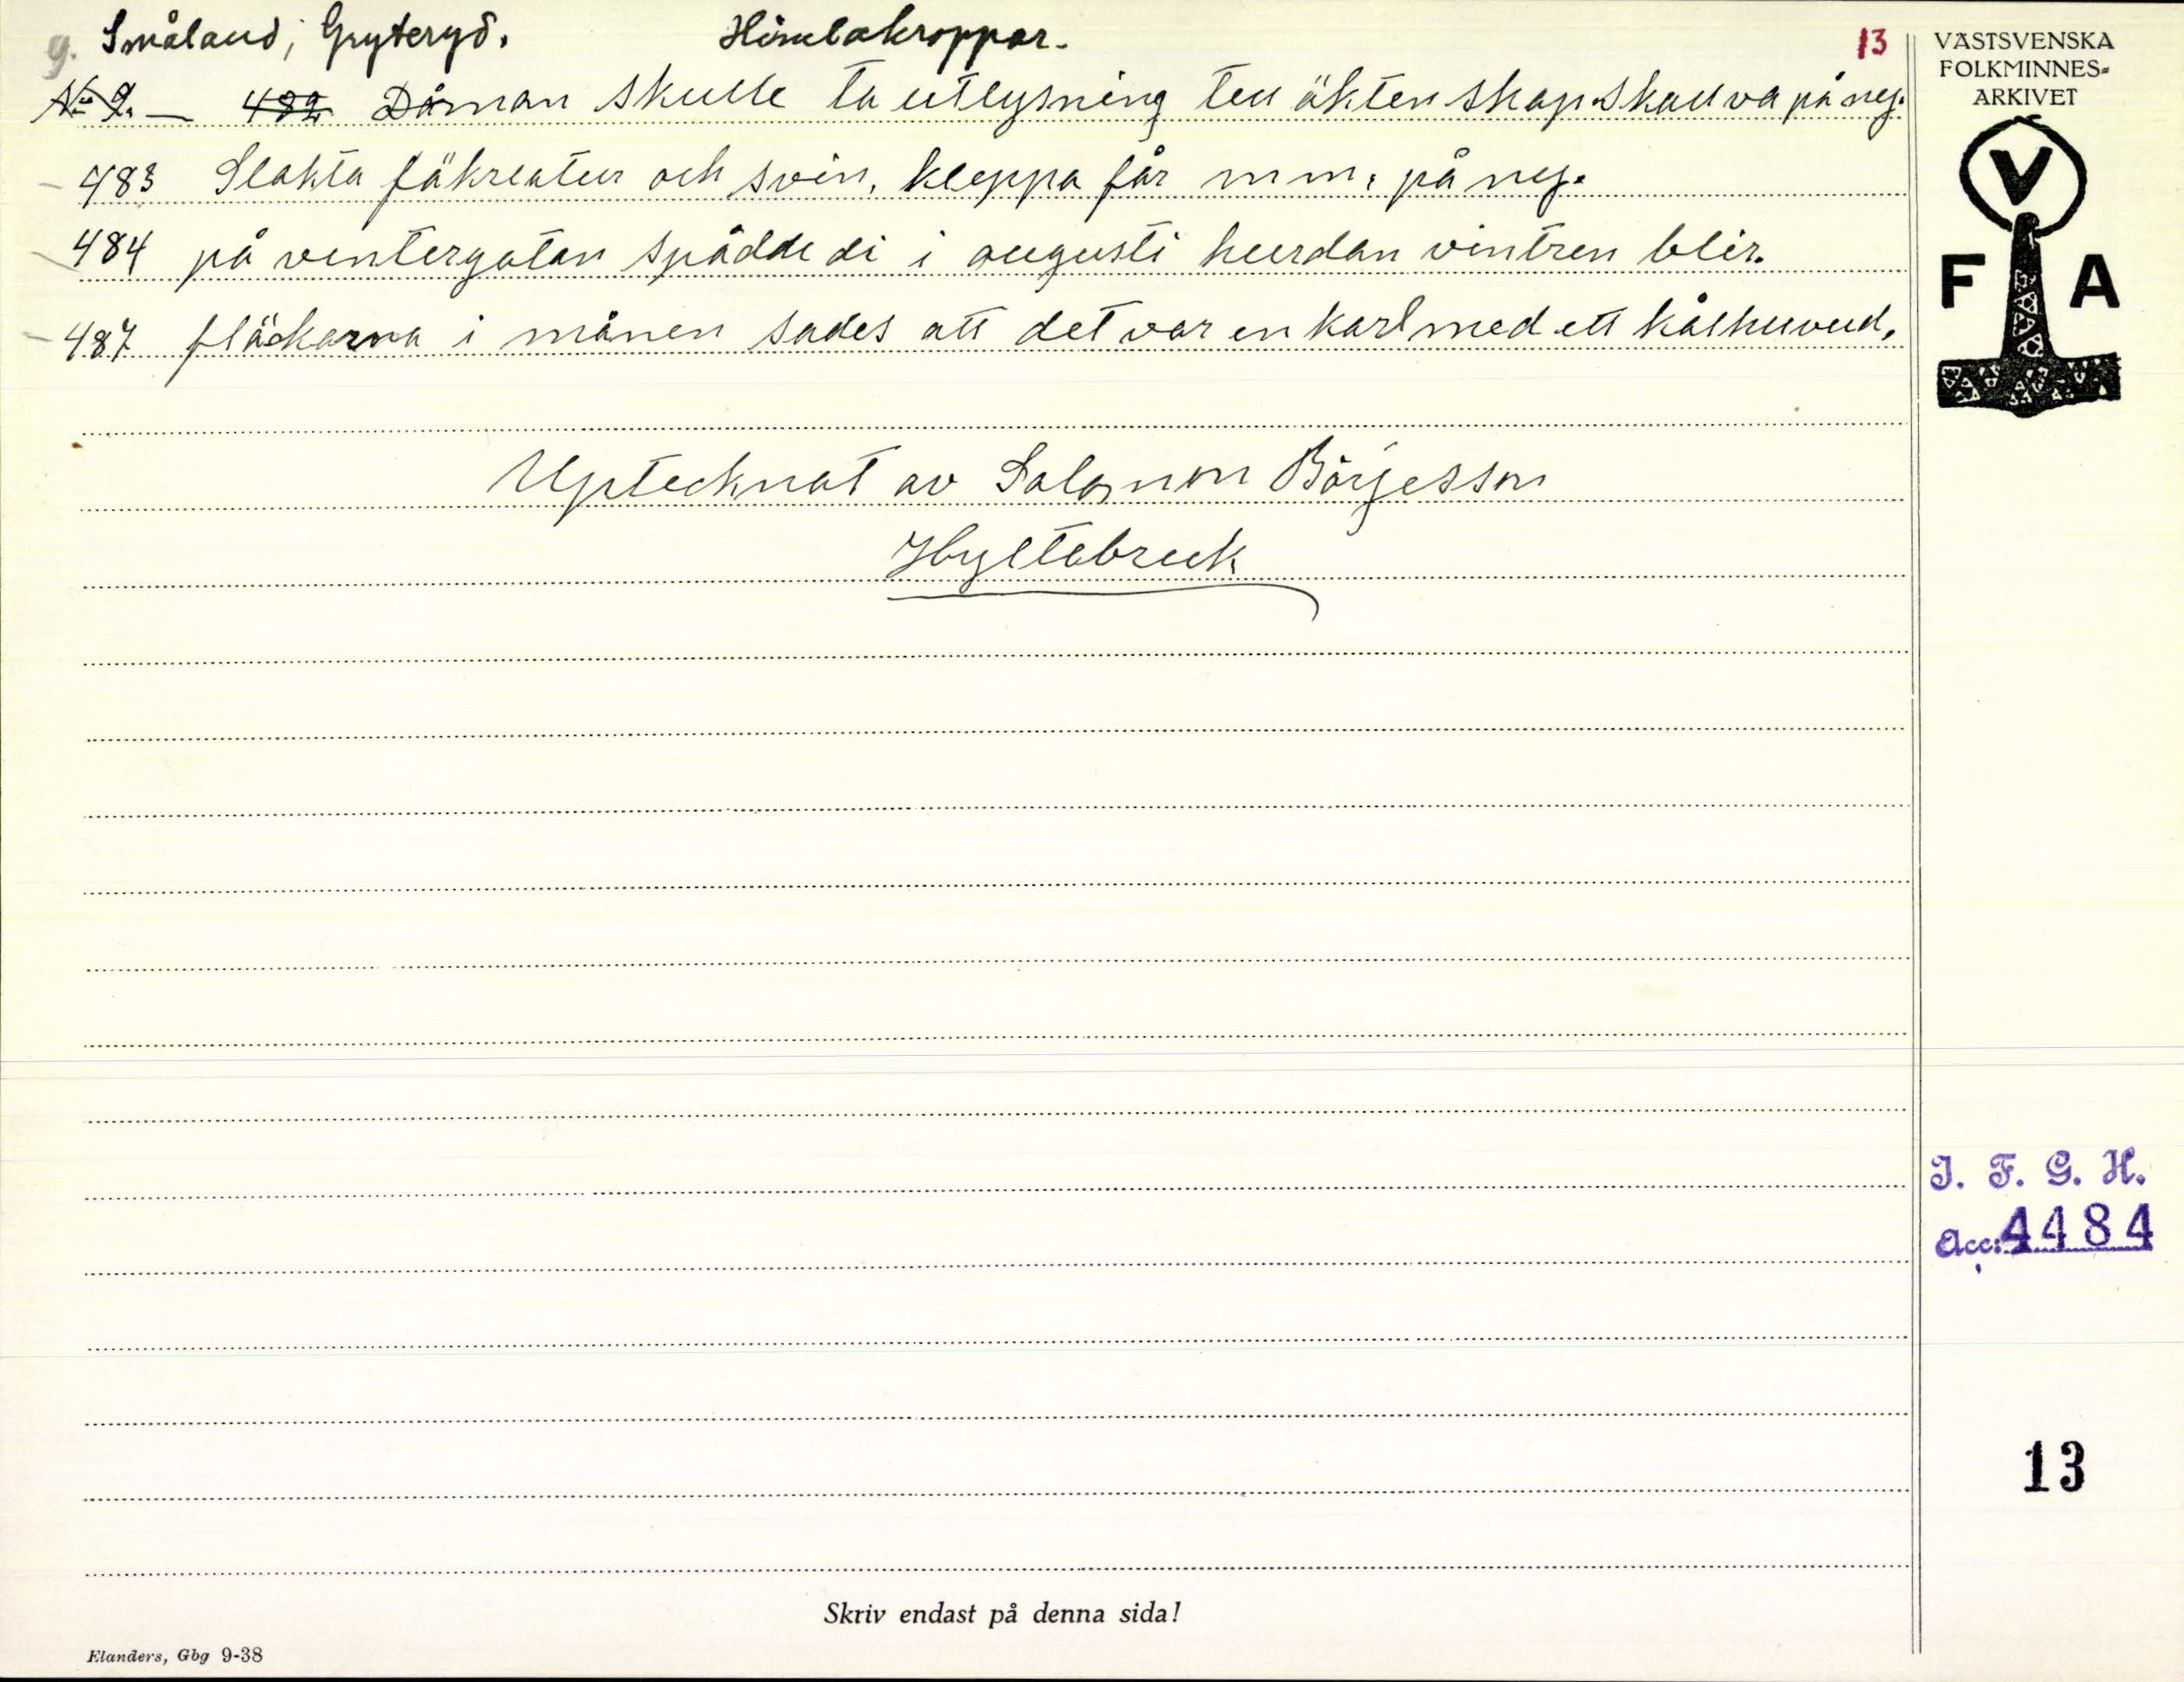 g. Småland; Gryteryd. Himlakroppar. 13
No 9. — 482 Då man skulle ta utlysning tell äktenskap skall va på ny.
- 483 Slakta fäkreatur och svin, kleppa får m m. på ny.
- 484 på ventergatan spådde di i augusti hurdan vintren blir.
- 487 fläckarna i månen sades att det var en karl med ett kålhuvud.
Uptecknat av Salomon Börjesson
Hyltebruk
VÄSTSVENSKA
FOLKMINNES-
ARKIVET
V
F A
I. F. G. H.
Acc: 4484
13
Skriv endast på denna sida!
Elanders, Gbg 9-38